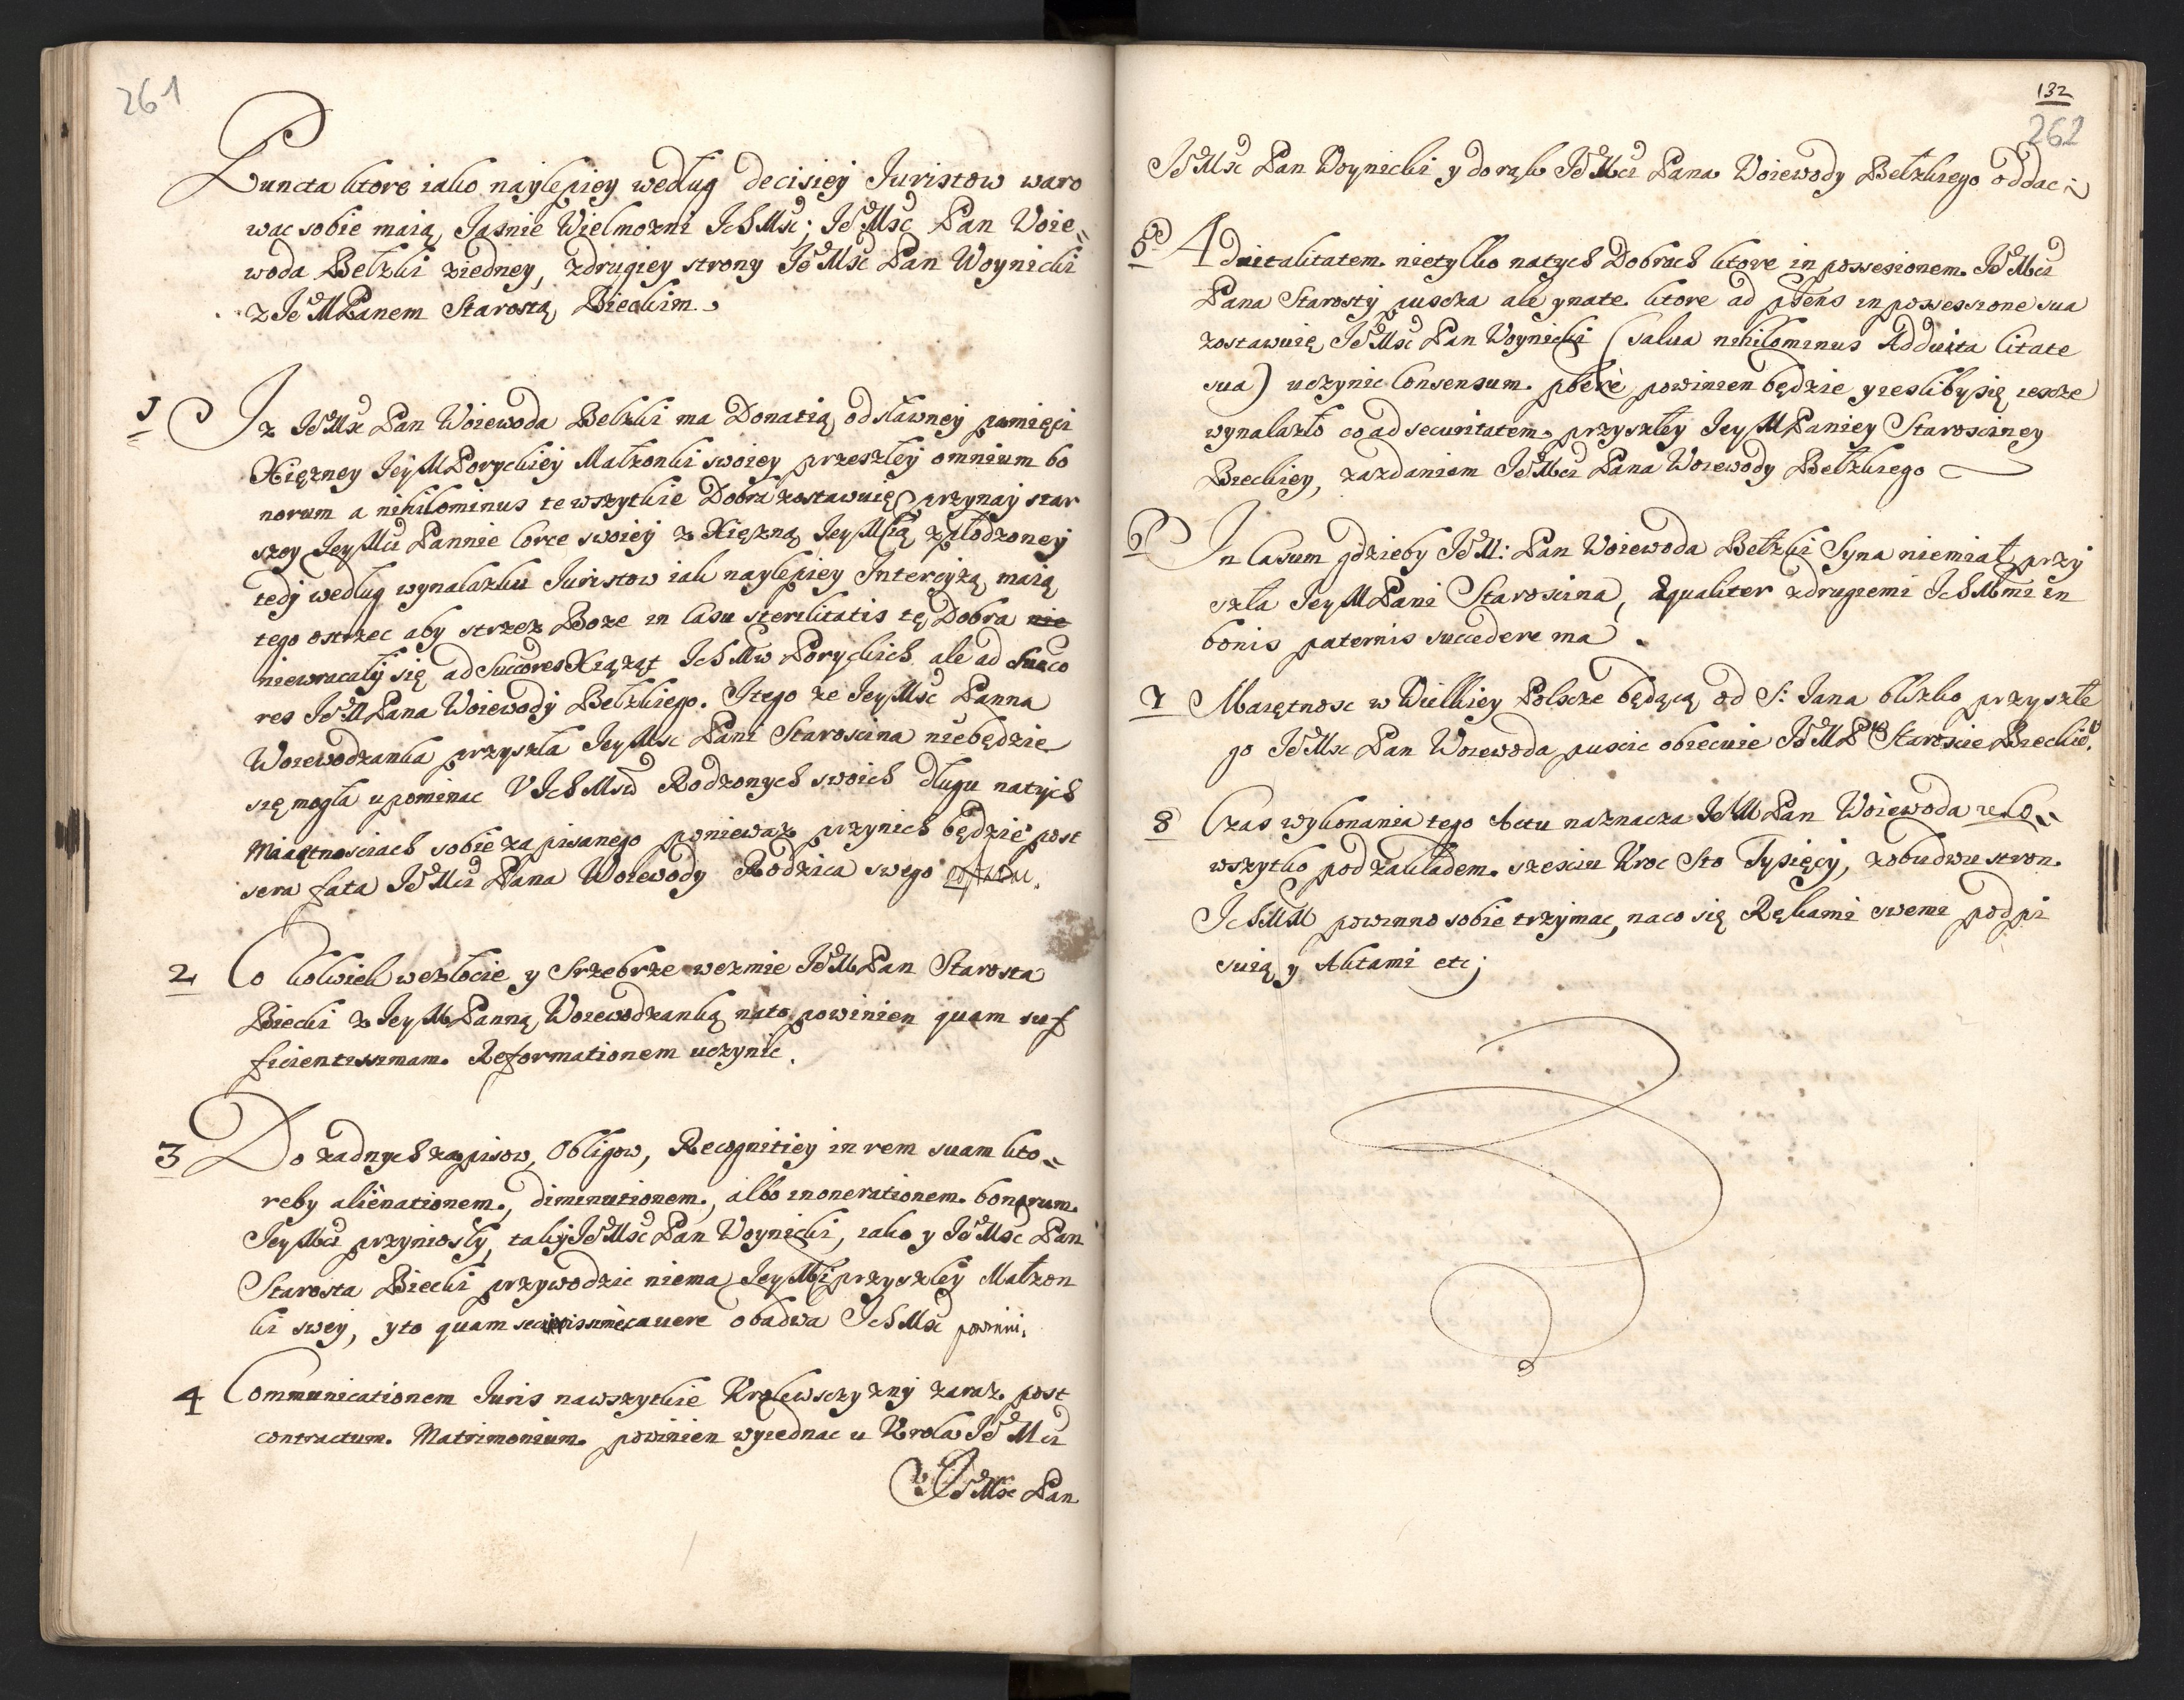 261
Puncta ktore iako naylepiey według decisiey Juristow waro
wac sobie maią, Jasnie Wielmozni IchMsc; JeºMsc Pan Woie„
woda Bełzki ziedney, zdrugiey strony JeºMsc Pan Woynicki
z JeºMPanem Starostą Bieckim.
1 Iz JeºMsc Pan Woiewoda Bełzki ma Donatią od sławney pamięci
Xięzney JeyMPoryckiey Małzonki swoiey przeszłey omnium bo
norum a nihilominus te wszytkie Dobra zostawuię przynay star
szey JeyMci Pannie Corce swoiey z Xięzną JeyMcią zpłodzoney
tedy według wynalazku Juristow iak naylepiey Intercyzą maią
tego ostrzec aby strzez Boze in Casu sterilitatis tę Dobra nie
niewracały się ad Succores Xiąząt IchMw Poryckich ale ad Succo
res JeºMPana Woiewody Bełzkiego. Itego ze JeyMsc Panna
Woiewodzanka przyszła JeyMsc Pani Starosina niebędzie
się mogła upominac V IchMsciw Rodzonych swoich długu natych
Maiętnosciach sobie zapisanego poniewaz przynich będzie post
sera fata JeºMci Pana Woiewody Rodzica swego
2 Cokolwiek wezłocie y Srzebrze wezmie JeºMPan Starosta
Biecki z JeyMPanną Woiewodzanką nato powinien quam suf
ficientissimam Reformationem uczynic.
3 Do zadnych zapisow, Obligow, Recognitiey in rem suam kto„
reby alienationem, diminutionem, albo inonerationem bonorum
JeyMci przyniosły, taky JeºMsc Pan Woynicki, iako y JeºMsc Pan
Starosta Biecki przywodzic niema JeyMci przyszłey Małzon
ki swey, yto quam cauere obadwa IchMsc powinni.
4 Communicationem Juris nawszytkie Krolewsczyzny zaraz post
contractum Matrimonium powinien wyiednac u Krola JeºMci
JeºMsc Pan
132
262
JeºMsc Pan Woynicki y do rąk JeºMci Pana Woiewody Bełzkiego oddac
5 Aduitalitatem nietylko natych Dobrach ktore in possesionem JeºMci
Pana Starosty pusczа ale ynate ktore ad pñens in possessione sua
zostawuię JeºMsc Pan Woynicki (salua nihilominus Adduita litate
sua) uczynic Consensum powinien będzie yiesliby się iescze
wynalazło co ad securitatem przyszłey JeyMPaniey Starosciney
Bieckiey, zazdaniem JeºMci Pana Woiewody Bełzkiego
6 In Casum gdzieby JeºM: Pan Woiewoda Bełzki Syna niemiał przy
szła JeyMPani Staroscina, Æqualiter zdrugiemi IchMmi in
bonis paternis succedere ma.
7 Maiętnosc w Wielkiey Polscze będącą od S: Jana blizko przyszłe
go JeºMsc Pan Woiewoda puscic obiecuie JeºMPu Staroscie Bieckieº.
8 Czas wykonania tego Actu naznacza JeºMPan Woiewoda
wszytko pod zakładem szesciu Kroc Sto Tysięcy, zobudwu stron
IchMM powinno sobie trzymac, naco się Rękami swemi podpi
suią y Aktami etc;